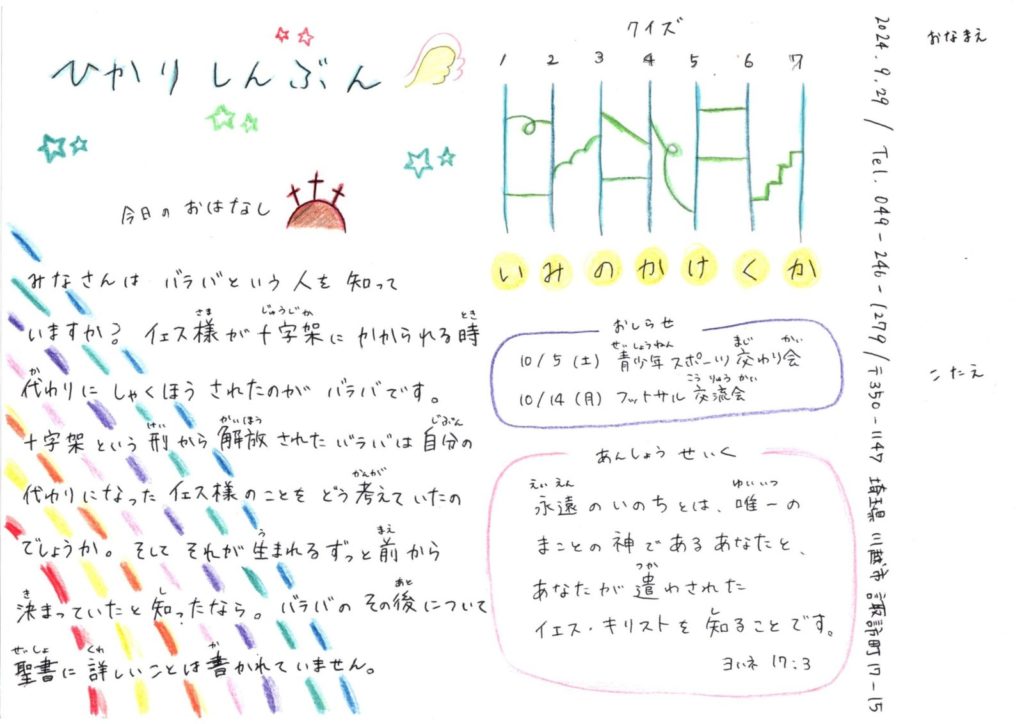 ひかりしんぶん
今日の おはなし
みなさんは バラバという 人を 知って
いますか? イエス様が十字架に かかられる時
代わりに しゃくほう されたのが バラバです。
十字架という 刑から 解放 された バラバは 自分の
代わりになった イエス様のことを どう 考えて いたの
でしょうか。 そして それが 生まれる ずっと 前から
決まっていたと 知ったなら。 バラバの その後について
聖書に 詳しいことは 書かれて いません。
クイズ
1 2 3 4 5 6 7
い み の か け く か
おしらせ
10/5 (土) 青少年 スポーツ 交わり会
10/14 (月) フットサル 交流会
あんしょう せいく
永遠 の いのち とは、唯一の
まことの 神で ある あなたと、
あなたが 遣わされた
イエス・キリストを 知る ことです。
ヨハネ 17:3
2024.9.29 / Tel. 049-246-1279 / 〒350-1147 埼玉県 川越市 諏訪町17-15
おなまえ
こたえ